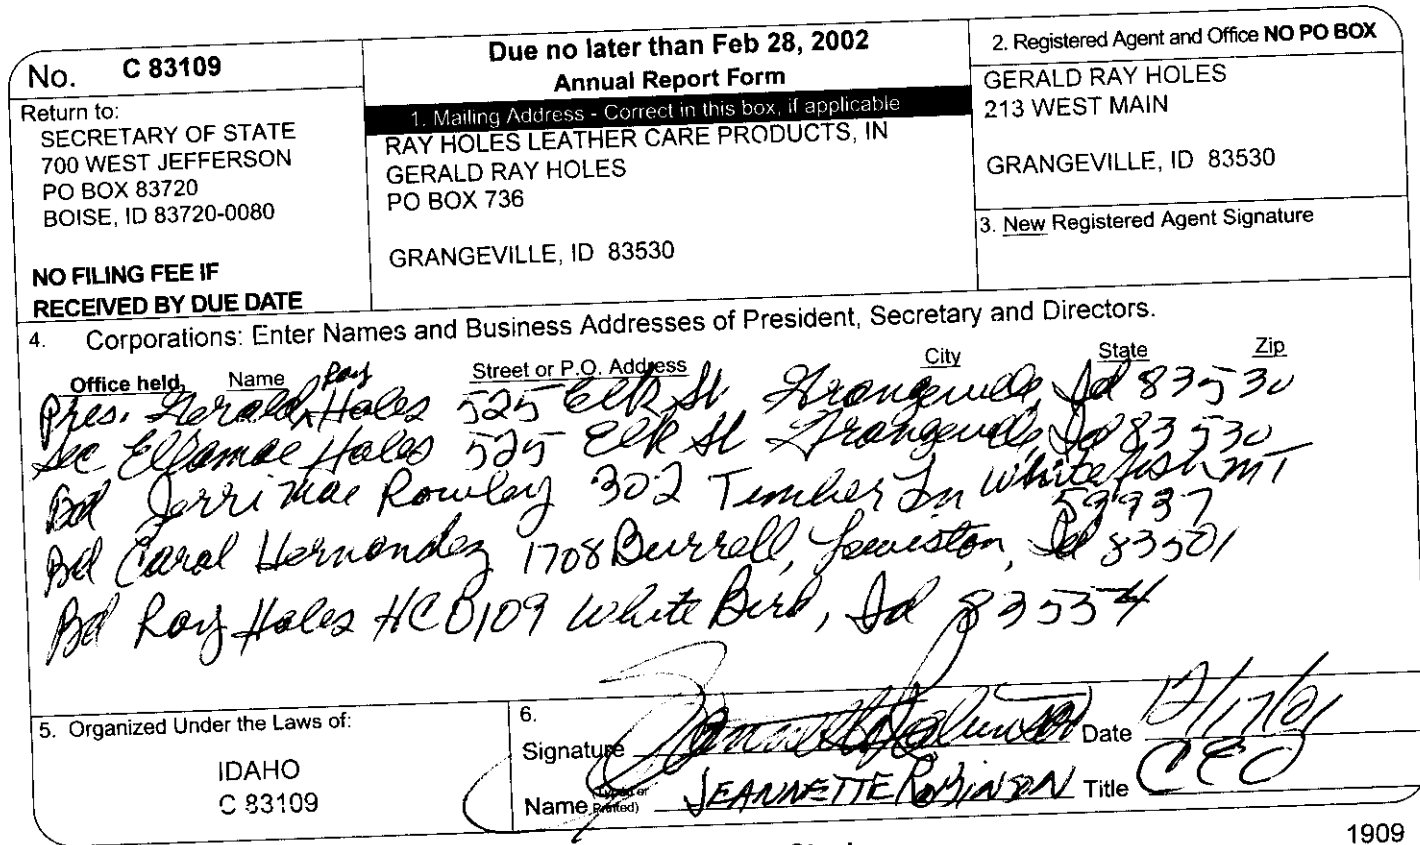 No. C 83109
Return to:
SECRETARY OF STATE
700 WEST JEFFERSON
PO BOX 83720
BOISE, ID 83720-0080
NO FILING FEE IF
RECEIVED BY DUE DATE
Due no later than Feb 28, 2002
Annual Report Form
1. Mailing Address - Correct in this box, if applicable
RAY HOLES LEATHER CARE PRODUCTS, IN
GERALD RAY HOLES
PO BOX 736
GRANGEVILLE, ID 83530
2. Registered Agent and Office NO PO BOX
GERALD RAY HOLES
213 WEST MAIN
GRANGEVILLE, ID 83530
3. New Registered Agent Signature
4. Corporations: Enter Names and Business Addresses of President, Secretary and Directors.
Office held Name Street or P.O. Address City State Zip
Pres. Gerald Ray Holes 525 Elk St Grangeville, Id 83530
Sec Holes 525 Elk St Grangeville, Id 83530
Bd Jerri Mae Rowley 302 Timber Ln Whitefish MT
59937
Bd Carol Hernandez 1708 Burrell, Lewiston, Id 83501
Bd Ray Holes White Bird, Id 83554
5. Organized Under the Laws of:
IDAHO
C 83109
6.
Signature Date 12/17/01
Name (Typed or Printed) JEANNETTE ROBINSON Title CEO
1909